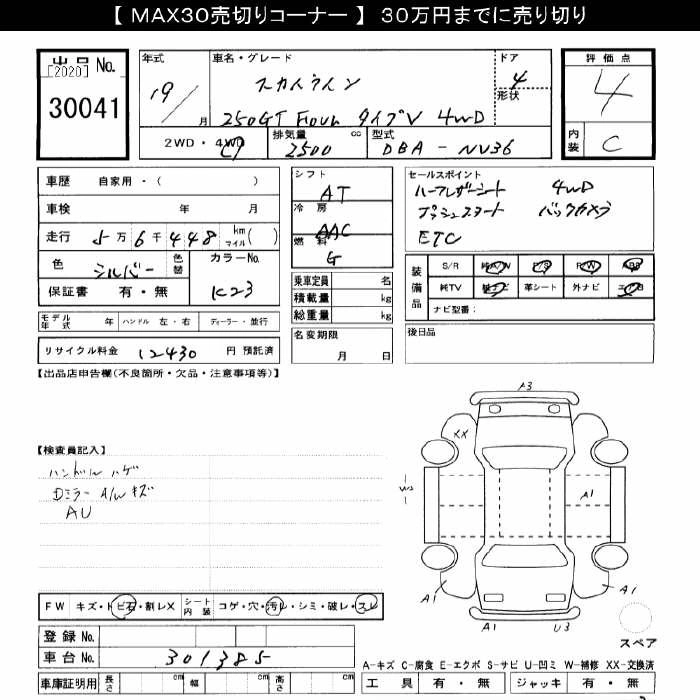 【 MAX30売切りコーナー 】 30万円までに売り切り
出品 No.
[2020]
30041
年式
19/ 月
車名・グレード
スカイライン
250GT Four タイプV 4WD
ドア
4
形状
評価点
4
内装
C
2WD・4WD
排気量 cc
2500
型式
DBA - NV36
車歴 自家用・( )
車検 年 月
走行 5万6千448 km マイル( )
色 シルバー 色替
カラーNo.
K23
保証書 有・無
モデル年式 年 ハンドル 左・右 ディーラー・並行
リサイクル料金 12430 円 預託済
シフト
AT
冷房
AAC
燃料
G
乗車定員 名
積載量 kg
総重量 kg
名変期限
月 日
セールスポイント
ハーフレザーシート 4WD
プッシュスタート バックカメラ
ETC
装備品
S/R 純A/W P/S P/W ABS
純TV 純ナビ 革シート 外ナビ エアB
ナビ型番:
後日品
【出品店申告欄(不良箇所・欠品・注意事項等)】
【検査員記入】
ハンドル ハゲ
Dミラー A/W キズ
AU
FW キズ・トビ石・割レX シート内装 コゲ・穴・汚レ・シミ・破レ・スレ
登録 No.
車台 No. 301385
車庫証明用 長さ cm 幅 cm 高さ cm
A3
XX
A1
A1
A1
A1
U3
スペア
A-キズ C-腐食 E-エクボ S-サビ U-凹ミ W-補修 XX-交換済
工具 有・無 ジャッキ 有・無